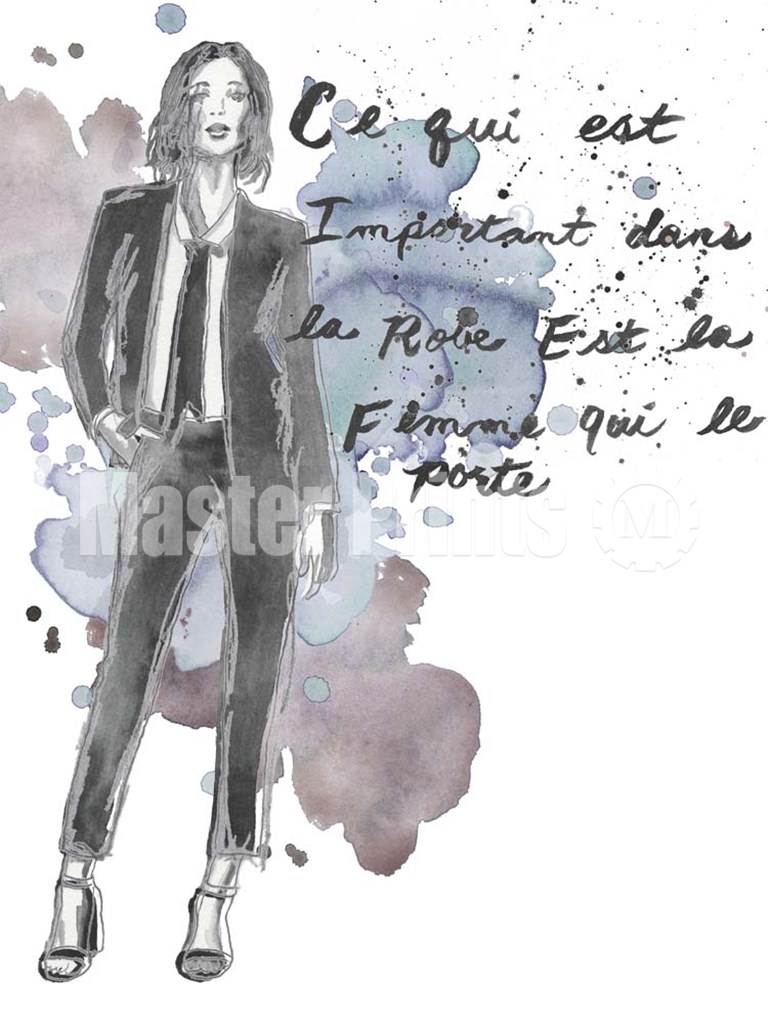 Ce qui est
Important dans
la Robe Est la
Femme qui le
porte
Master Prints M